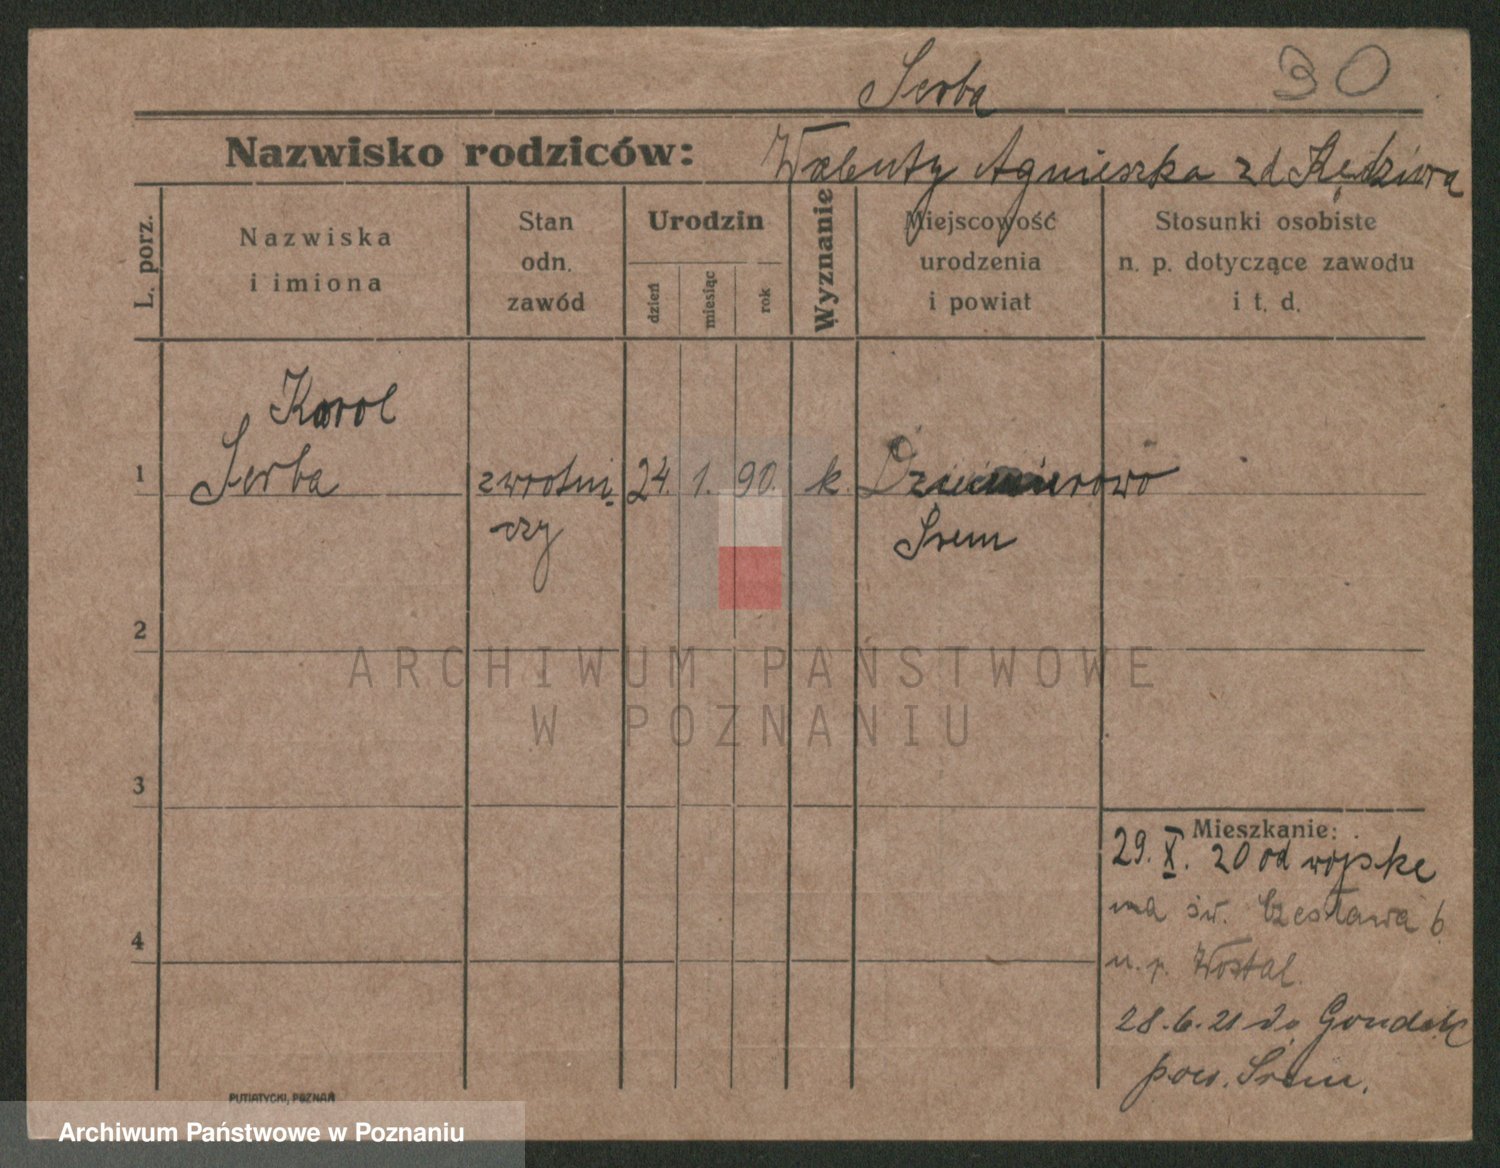 Serba
30
Nazwisko rodziców: Walenty Agnieszka zd Kędziora
L. porz.
Nazwiska
i imiona
Stan
odn.
zawód
Urodzin
dzień
miesiąc
rok
Wyznanie
Miejscowość
urodzenia
i powiat
Stosunki osobiste
n. p. dotyczące zawodu
i t. d.
Karol
1 Serba zwrotni 24. 1. 90. k.
czy Śrem
2
ARCHIWUM PAŃSTWOWE
W POZNANIU
3
Mieszkanie:
29. X. 20 od wojska
na św. Czesława 6
u. p.
4
28.6.21 do
pow. Śrem.
PUTIATYCKI, POZNAŃ
Archiwum Państwowe w Poznaniu